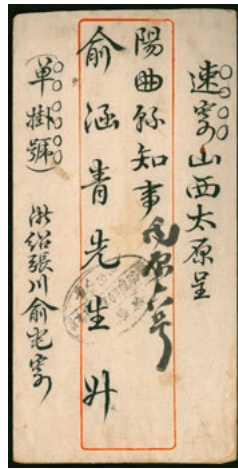 速寄山西太原呈
陽曲縣知事
俞涵青先生升
（單掛號）
紹張川俞宅寄